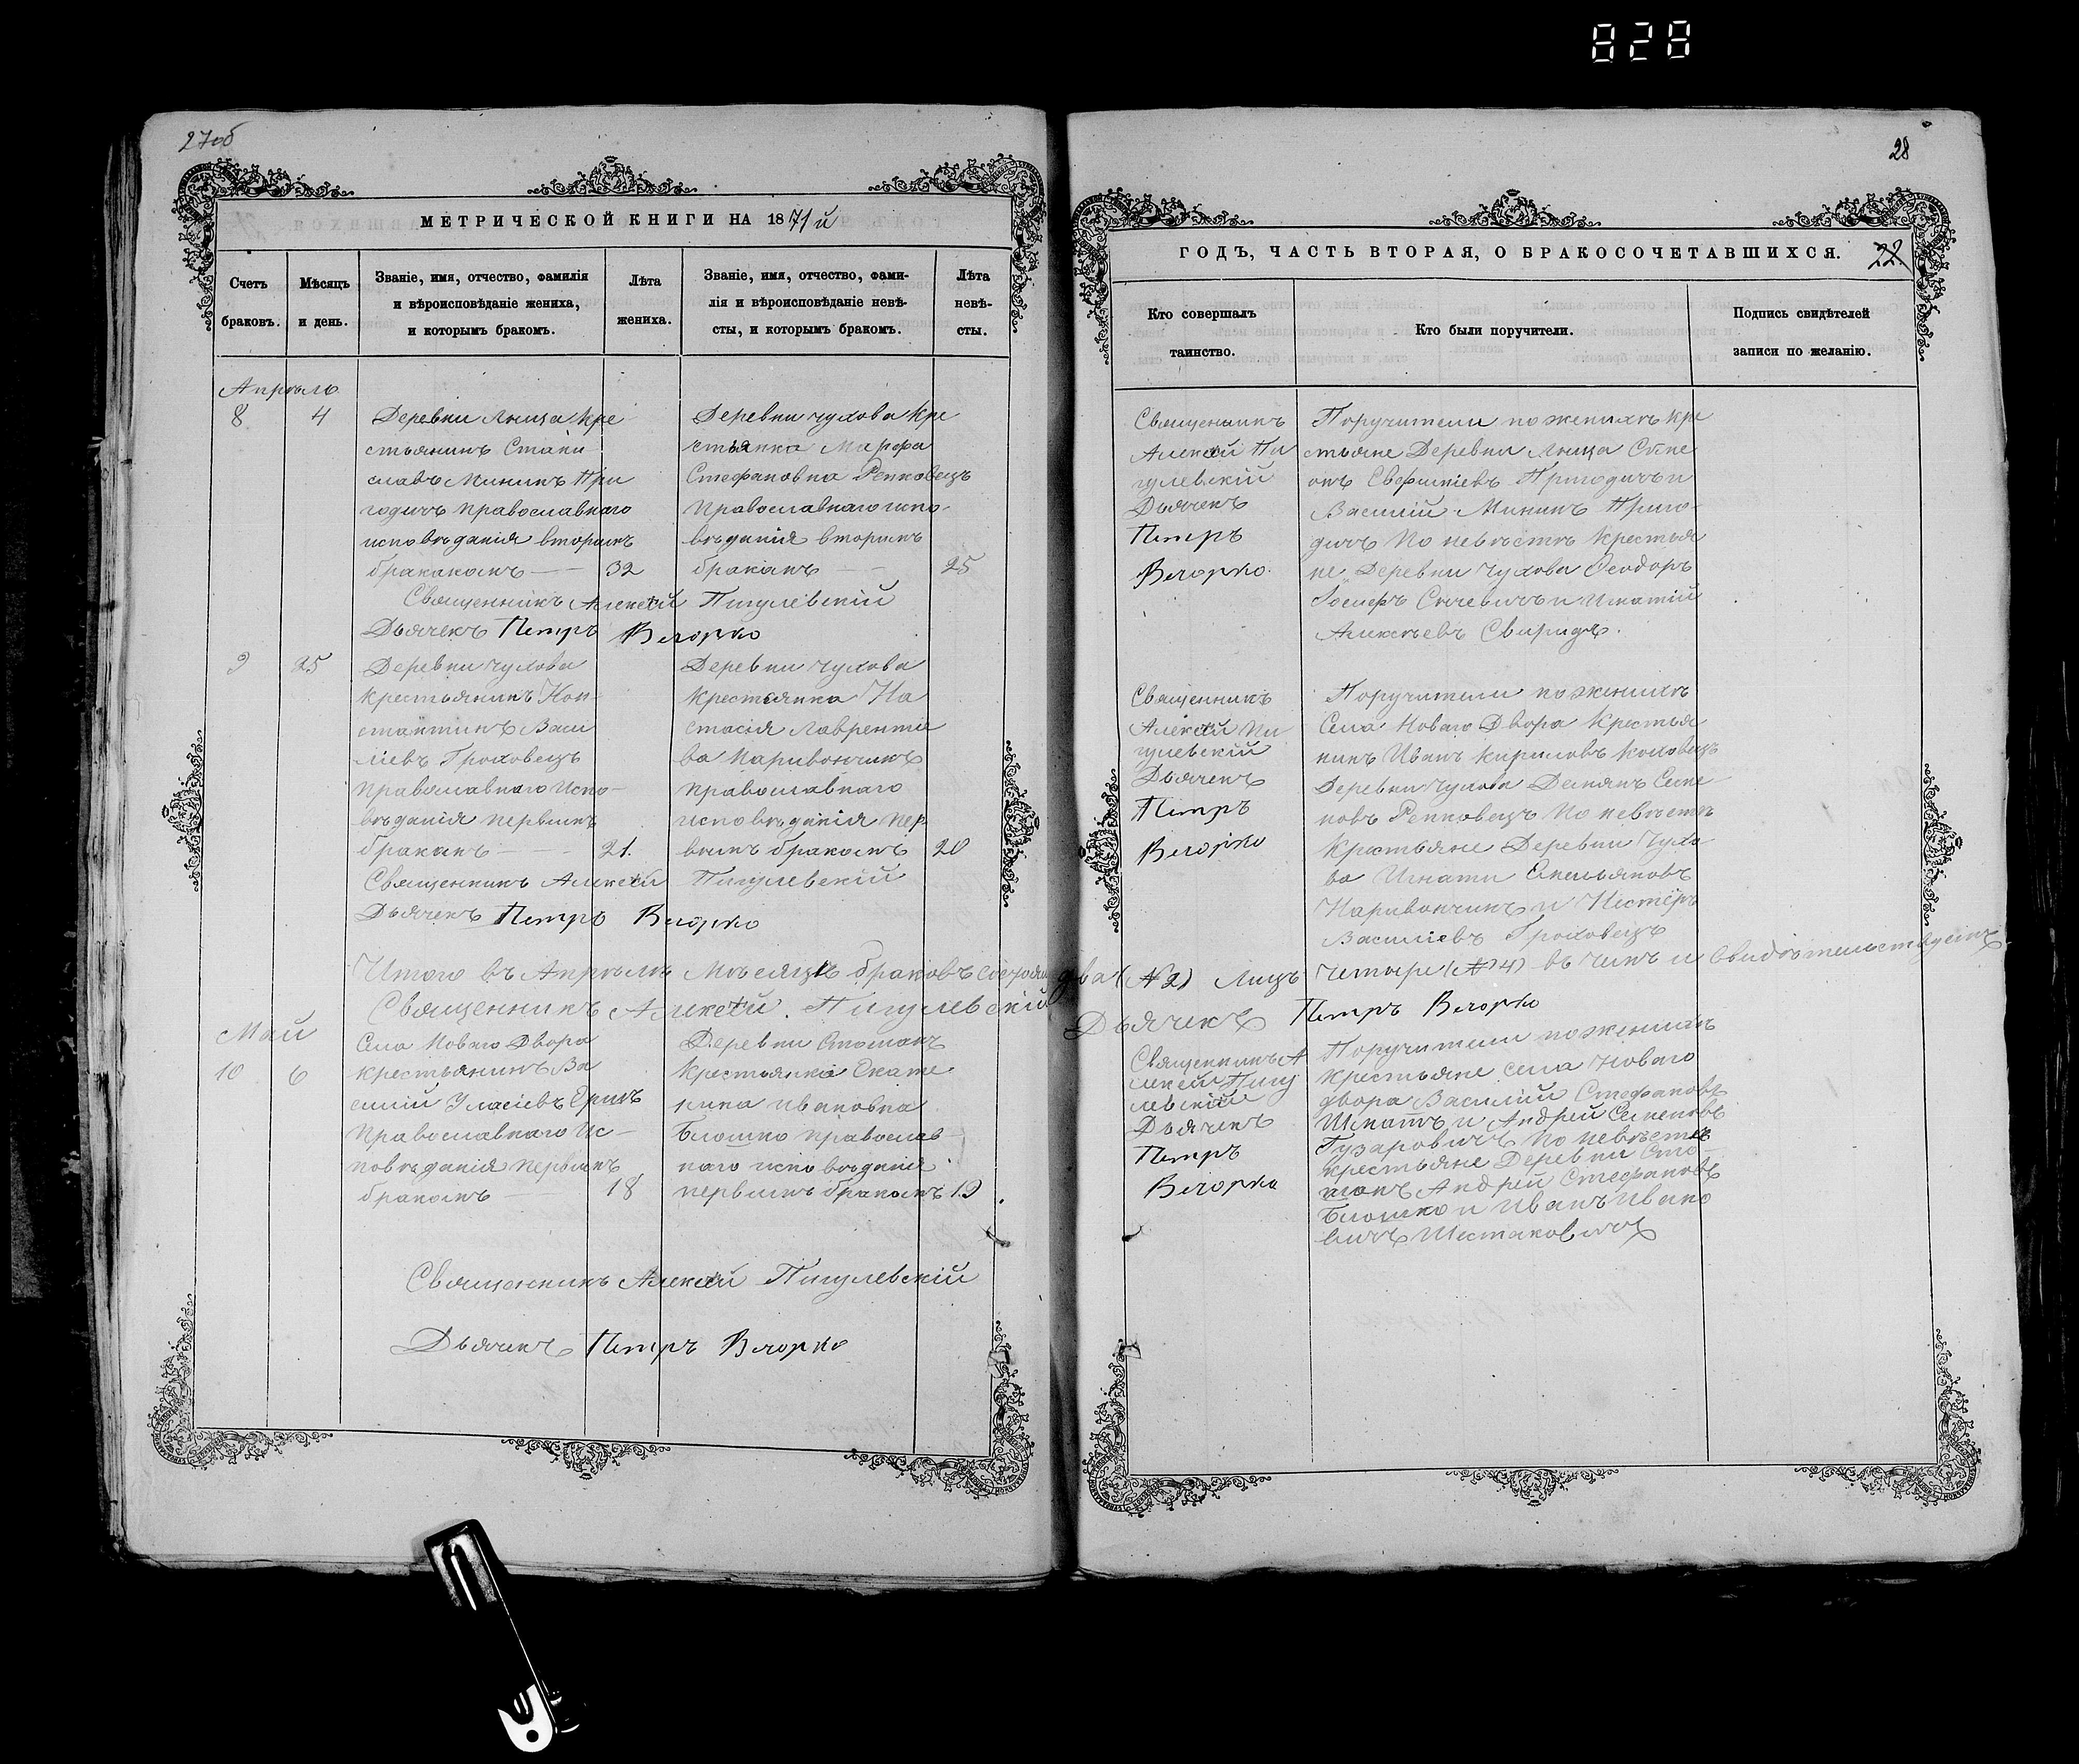 828
27об
МЕТРИЧЕСКОЙ КНИГИ НА 1871й
Счетъ
браковъ.
Мѣсяцъ
и день.
Званіе, имя, отчество, фамилія
и вѣроисповѣданіе жениха,
и которымъ бракомъ.
Лѣта
жениха.
Званіе, имя, отчество, фами-
лія и вѣроисповѣданіе невѣ-
сты, и которымъ бракомъ.
Лѣта
невѣ-
сты.
Апрѣль
8
4
Деревни Лыща кре
стьянинъ Стани
славъ Мининъ При
годичъ православнаго
исповѣданія вторымъ
бракакомъ
32
Деревни Чухова кре
стьянка Марфа
Стефановна Репковецъ
Православнаго испо-
вѣданія вторымъ
бракомъ
25
Священникъ Алексѣй Пигулевскій
Дьячекъ Петръ Вечорко
9
25
Деревни Чухова
крестьянинъ Кон-
стантинъ Васи
ліевъ Гроховецъ
Православнаго Испо-
вѣданія первымъ
бракомъ
21.
Деревни Чухова
Крестьянка На
стасія Лаврентіе
ва Наривончикъ
Православнаго
исповѣданія пер
вымъ бракомъ
20
Священникъ Алексѣй Пигулевскій
Дьячекъ Петръ Вечорко
Итого въ Апрѣлѣ Мѣсяцѣ браковъ
Священникъ Алексѣй Пигулевскій
Май
10
6
Села Новаго Двора
крестьянинъ Ва
силій Уласіевъ
Православнаго Ис-
повѣданія первымъ
бракомъ
18
Деревни
Крестьянка Екате
рина Ивановна
Блошко православ
наго исповѣданія
первымъ бракомъ
19
Священникъ Алексѣй Пигулевскій
Дьячекъ Петръ Вечорко
28
ГОДЪ, ЧАСТЬ ВТОРАЯ, О БРАКОСОЧЕТАВШИХСЯ.
22.
Кто совершалъ
таинство.
Кто были поручители.
Подпись свидѣтелей
записи по желанію.
Священникъ
Алексѣй Пи
гулевскій
Дьячекъ
Петръ
Вечорко.
Поручители по женихѣ кре
стьяне Деревни Лыща Семе
онъ Евфиміевъ Пригодичъ и
Василій Мининъ Приго-
дичъ По невѣстѣ крестья
не Деревни Чухова Ѳеодоръ
Іосифъ и Игнатій
Алексѣевъ Свиридъ.
Священникъ
Алексѣй Пи
гулевскій
Дьячекъ
Петръ
Вечорко
Поручители по женихѣ
Села Новаго Двора Крестья
нинъ Иванъ Кириловъ
Деревни Чухова Демянъ Семе-
новъ Репковецъ По невѣстѣ
Крестьяне Деревни Чухо-
ва Игнати Емельяновъ
Наривончикъ и Нестеръ
Василіевъ Гроховецъ
два (№ 2) Лицъ Четыре (№ 4) въ чемъ и свидѣтельствуемъ
Дьячекъ Петръ Вечорко
Священникъ А
лексѣй Пигу
левскій
Дьячекъ
Петръ
Вечорко
Поручители по женихѣ
Крестьяне села Новаго
двора Василій Стефановъ
и Андрей Семеновъ
Гузаровичъ По невѣстѣ
крестьяне Деревни
Андрей Стефановъ
Блошко и Иванъ Ивано
вичъ Шестаковичъ